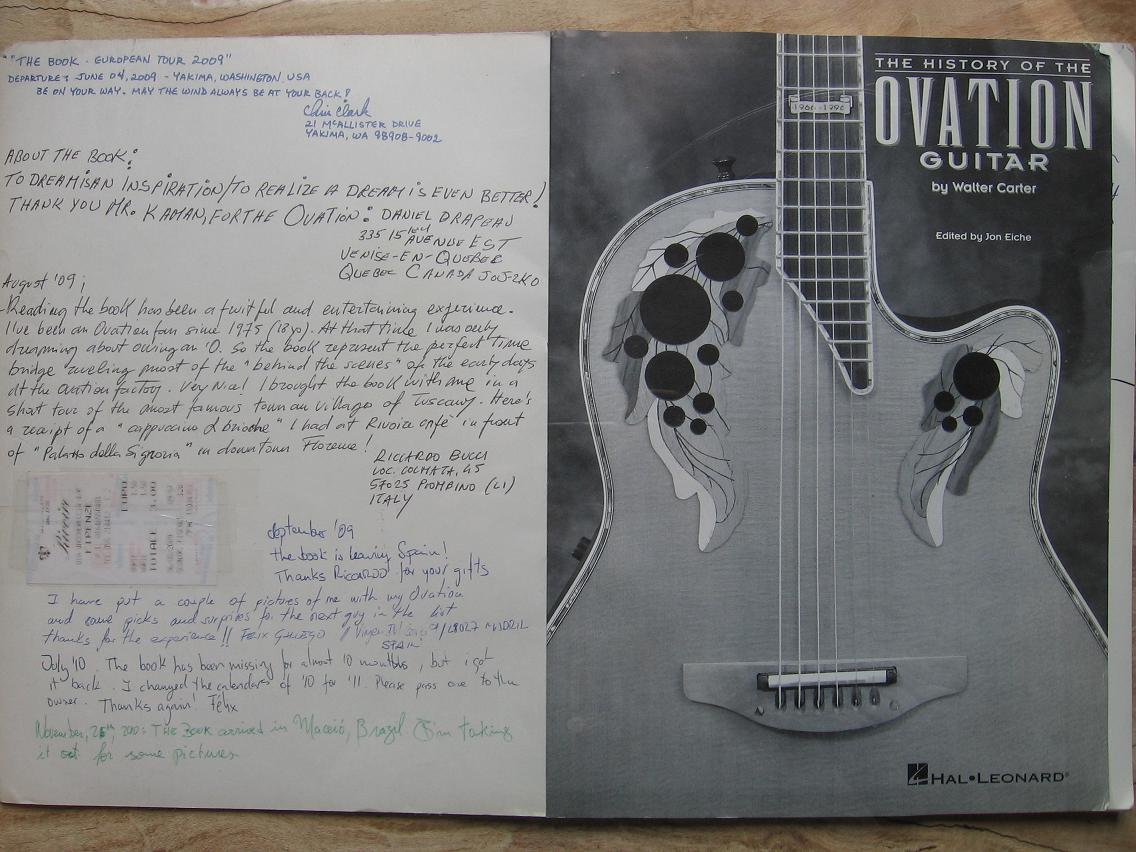 "THE BOOK - EUROPEAN TOUR 2009"
DEPARTURE: JUNE 04, 2009 - YAKIMA, WASHINGTON, USA
BE ON YOUR WAY. MAY THE WIND ALWAYS BE AT YOUR BACK!
Chris Clark
21 McALLISTER DRIVE
YAKIMA, WA 98908-9002
ABOUT THE BOOK:
TO DREAM IS AN INSPIRATION/TO REALIZE A DREAM IS EVEN BETTER!
THANK YOU MR. KAMAN, FOR THE OVATION: DANIEL DRAPEAU
335 15 ieu AVENUE EST
VENISE-EN-QUEBEC
QUEBEC CANADA J0J-2K0
August '09;
Reading the book has been a fruitful and entertaining experience.
I've been an Ovation fan since 1975 (18yo). At that time I was only
dreaming about owing an 'O. So the book represent the perfect time
bridge raveling most of the "behind the scenes" of the early days
at the Ovation factory. Very Nice! I brought the book with me in a
short tour of the most famous town an villages of Tuscany. Here's
a receipt of a "cappuccino & brioche" I had at Rivoire cafè in front
of "Palazzo della Signoria" in downtown Florence!
RICCARDO BUCCI
LOC. COLMATA, 45
57025 PIOMBINO (LI)
ITALY
Rivoire
FIRENZE
EURO
TOTALE 3.00
September '09
the book is leaving Spain!
Thanks Riccardo for your gifts
I have put a couple of pictures of me with my Ovation
and some picks and surprises for the next guy in the list
thanks for the experience!! FELIX GALLEGO MADRID
SPAIN
July '10 The book has been missing for almost 10 months, but i got
it back. I changed the calendars of '10 for '11. Please pass one to the
owner. Thanks again! Félix
November, 25th, 2010: THE BOOK arrived in Maceió, Brazil I'm taking
it out for some pictures
THE HISTORY OF THE
OVATION
GUITAR
by Walter Carter
Edited by Jon Eiche
1966-1996
HAL•LEONARD®